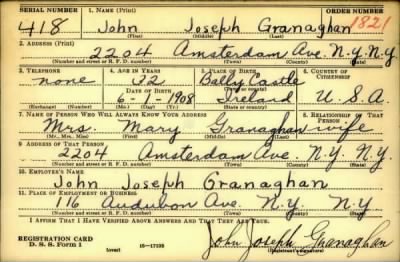 SERIAL NUMBER 1. NAME (Print) ORDER NUMBER
418 John Joseph Granaghan 1821
(First) (Middle) (Last)
2. ADDRESS (Print)
2204 Amsterdam Ave. N.Y. N.Y.
(Number and street or R. F. D. number) (Town) (County) (State)
3. TELEPHONE 4. AGE IN YEARS 5. PLACE OF BIRTH 6. COUNTRY OF CITIZENSHIP
none 32 Bally Castle
DATE OF BIRTH (Town or county)
6-1-1908 Ireland U.S.A.
(Exchange) (Number) (Mo.) (Day) (Yr.) (State or country)
7. NAME OF PERSON WHO WILL ALWAYS KNOW YOUR ADDRESS 8. RELATIONSHIP OF THAT PERSON
Mrs. Mary Granaghan wife
(Mr., Mrs., Miss) (First) (Middle) (Last)
9. ADDRESS OF THAT PERSON
2204 Amsterdam Ave. N.Y. N.Y.
(Number and street or R. F. D. number) (Town) (County) (State)
10. EMPLOYER'S NAME
John Joseph Granaghan
11. PLACE OF EMPLOYMENT OR BUSINESS
116 Audubon Ave. N.Y. N.Y.
(Number and street or R. F. D. number) (Town) (County) (State)
I AFFIRM THAT I HAVE VERIFIED ABOVE ANSWERS AND THAT THEY ARE TRUE.
REGISTRATION CARD
D. S. S. Form 1 (over) 16-17105 John Joseph Granaghan
(Registrant's signature)